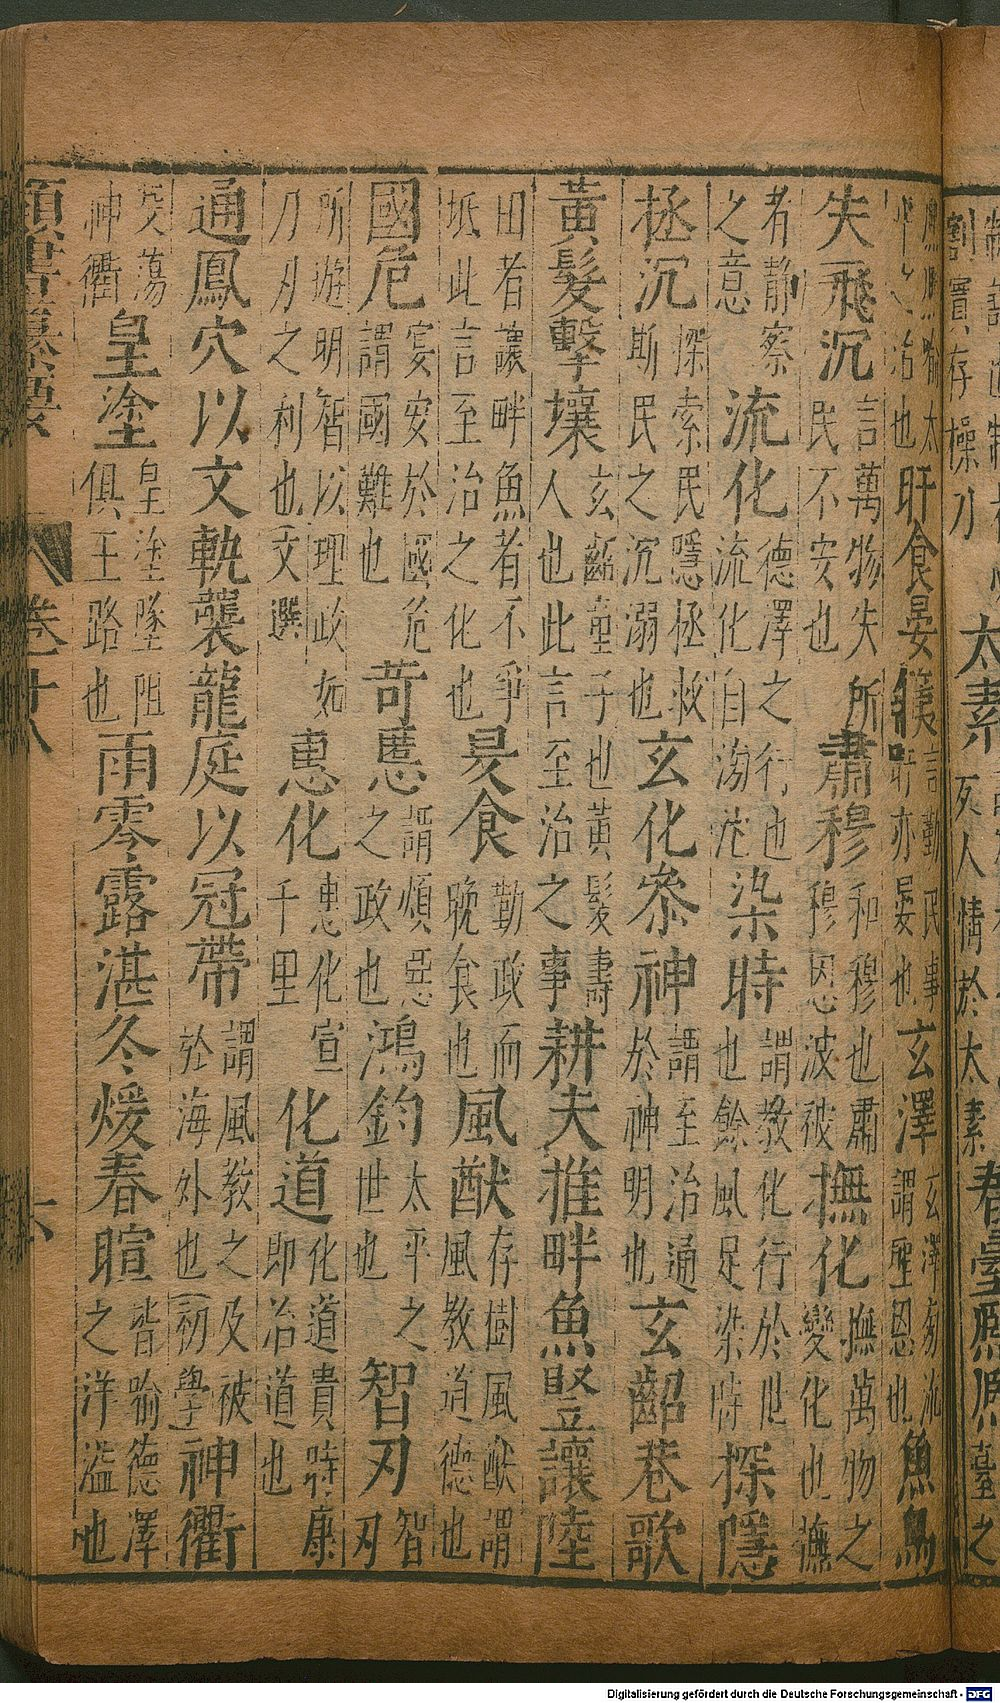 劄實存操刀 太素 反人情於太素 春臺
治也 旰食晏 言勤民事 旰亦晏也 玄澤 玄澤旁流 謂聖恩也 魚鳥
失飛沉 言萬物失所 民不安也 肅穆 和穆也肅 穆恩波被 撫化 撫萬物之 變化也撫
者靜察 之意 流化 德澤之行也 流化自滂沱 染時 謂教化行於世 也餘風足染時 探隱
拯沉 探索民隱拯救 斯民之沉溺也 玄化參神 謂至治通 於神明也 玄齠巷歌
黃髮擊壤 玄齠童子也黃髮壽 人也此言至治之事 耕夫推畔魚豎讓陸
田者讓畔魚者不爭 坻此言至治之化也 旻食 勤政而 晚食也 風猷 存樹風猷謂 風教道德也
國危 宴安於國危 謂國難也 苛慝 謂煩惡 之政也 鴻鈞 太平之 世也 智刃 智 刃
所遊明智以理政如 刀刃之利也文選 惠化 惠化宣 千里 化道 化道貴時康 即治道也
通鳳穴以文軌襲龍庭以冠帶 謂風教之及被 於海外也(初學) 神衢
蕩 神衢 皇塗 皇塗墜阻 俱王路也 雨零露湛冬煖春暄 皆喻德澤 之洋溢也
類書纂要 卷廿八 六
Digitalisierung gefördert durch die Deutsche Forschungsgemeinschaft - DFG